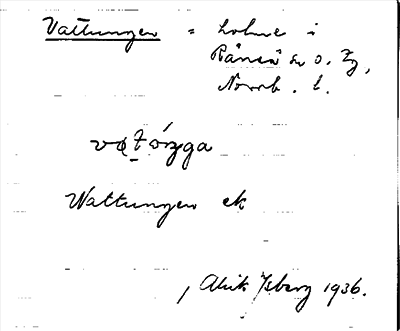 Vattungen = holme i
Råneå sn o. Tg,
Norrb. l.
Wattungen ek
Alrik Ysberg 1936.